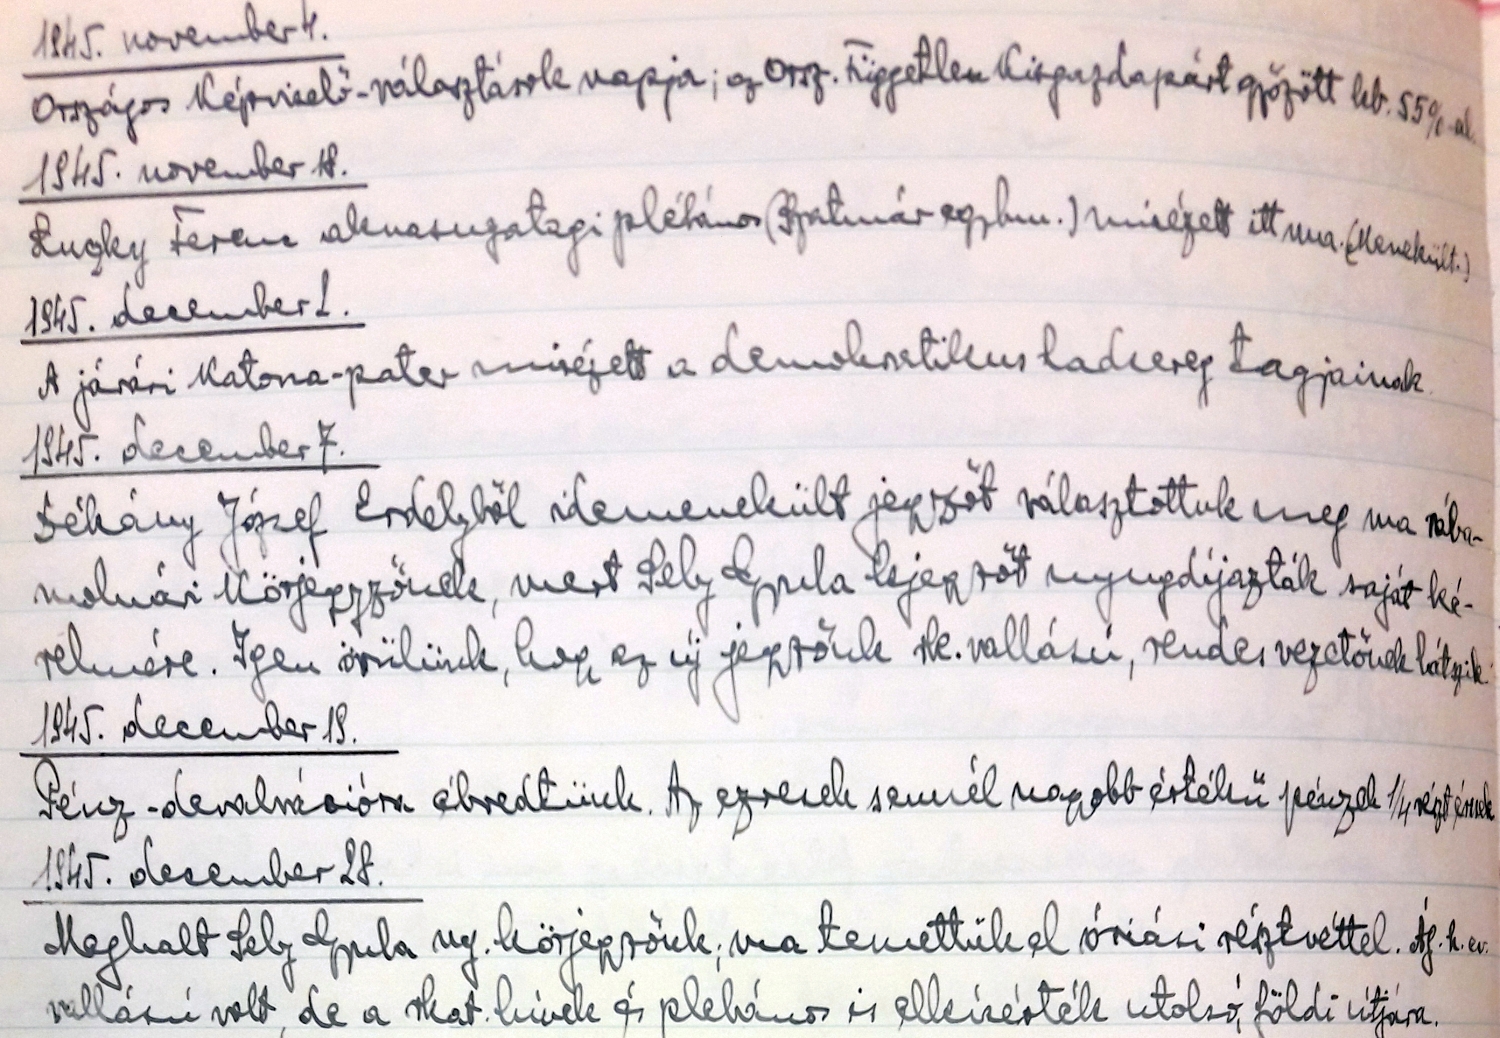 1945. november 4.
Országos képviselő-választások napja; az Orsz. Független Kisgazdapárt győzött kb. 55%-al.
1945. november 18.
Ferenc aknasugatagi plébános (Szatmár egyhm.) misézett itt ma. (Menekült.)
1945. december 1.
A járási katona-pater misézett a demokratikus hadsereg tagjainak.
1945. december 7.
Békány József Erdélyből idemenekült jegyzőt választottuk meg ma rába-
molnári körjegyzőnek, mert Sely Gyula kjegyzőt nyugdíjazták saját ké-
relmére. Igen örülünk, hogy az új jegyzőnk rk. vallású, rendes vezetőnek látszik.
1945. december 19.
Pénz-devalvációra ébredtünk. Az ezresek s ennél nagobb értékű pénzek 1/4 részt érnek
1945. december 28.
Meghalt Sely Gyula ny. körjegyzőnk; ma temettük el óriási résztvéttel. Ág. h. ev.
vallású volt, de a rkat. hívek és plebános is elkisérték utolsó, földi útjára.